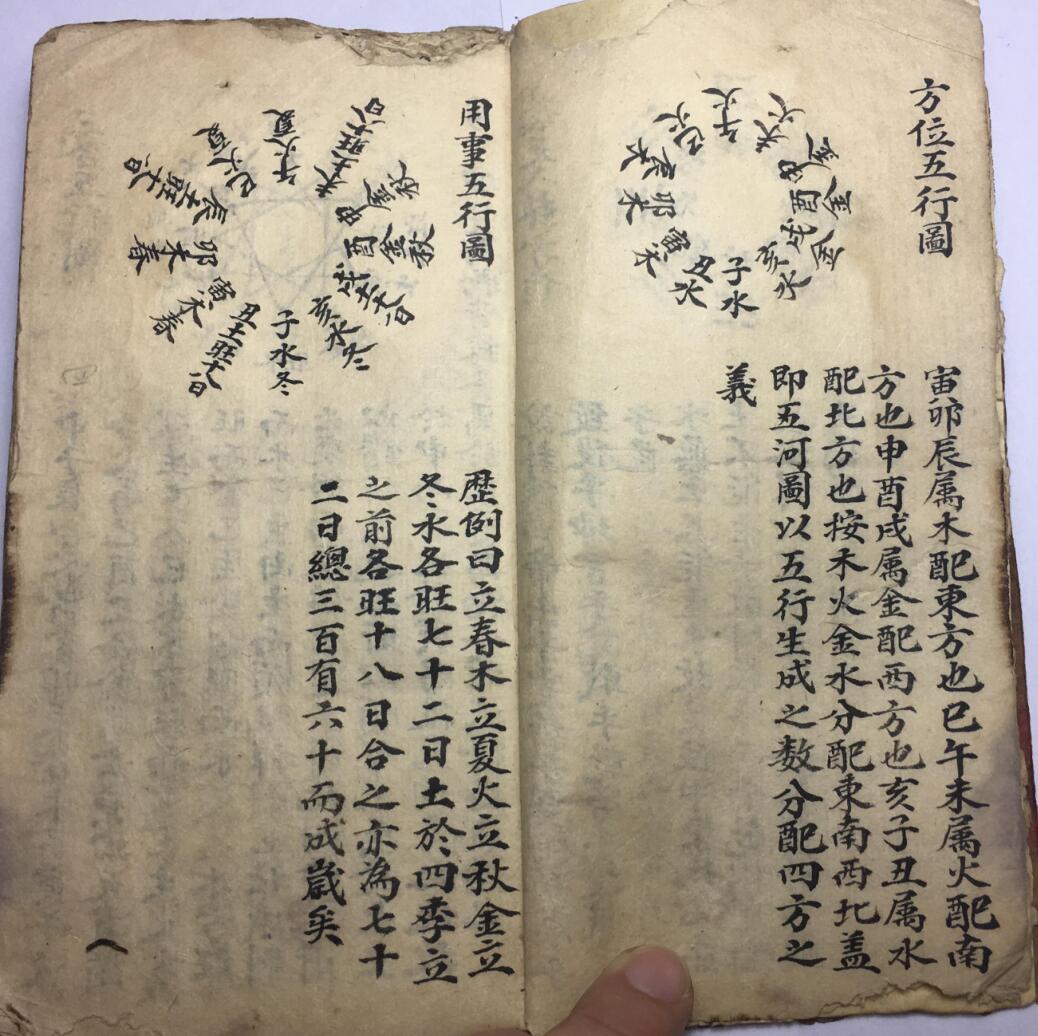 方位五行圖
子水
丑水
寅木
卯木
辰木
巳火
午火
未火
申金
酉金
戌金
亥水
寅卯辰属木配東方也巳午未属火配南
方也申酉戌属金配西方也亥子丑属水
配北方也按木火金水分配東南西北盖
即五河圖以五行生成之数分配四方之
義
用事五行圖
子水冬
丑土旺十八日
寅木春
卯木春
辰土旺十八日
巳火夏
午火夏
未土旺十八日
申金秋
酉金秋
戌土十八日
亥水冬
歴例曰立春木立夏火立秋金立
冬水各旺七十二日土於四季立
之前各旺十八日合之亦為七十
二日總三百有六十而成歲矣